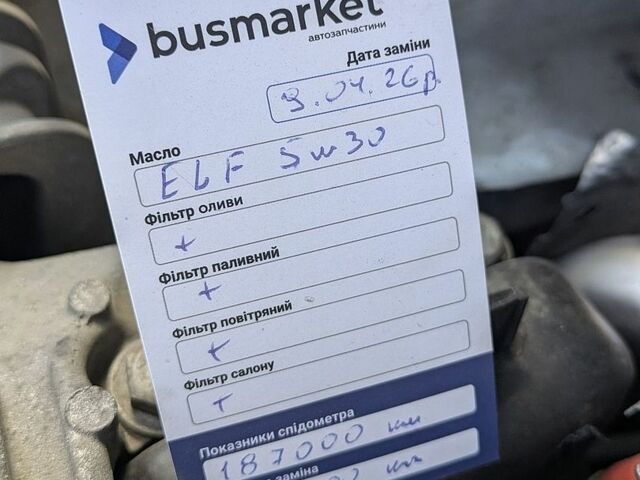 busmarket
автозапчастини
Дата заміни
9.04.26р.
Масло
ELF 5w30
Фільтр оливи
+
Фільтр паливний
+
Фільтр повітряний
+
Фільтр салону
+
Показники спідометра
187000 км
заміна
км